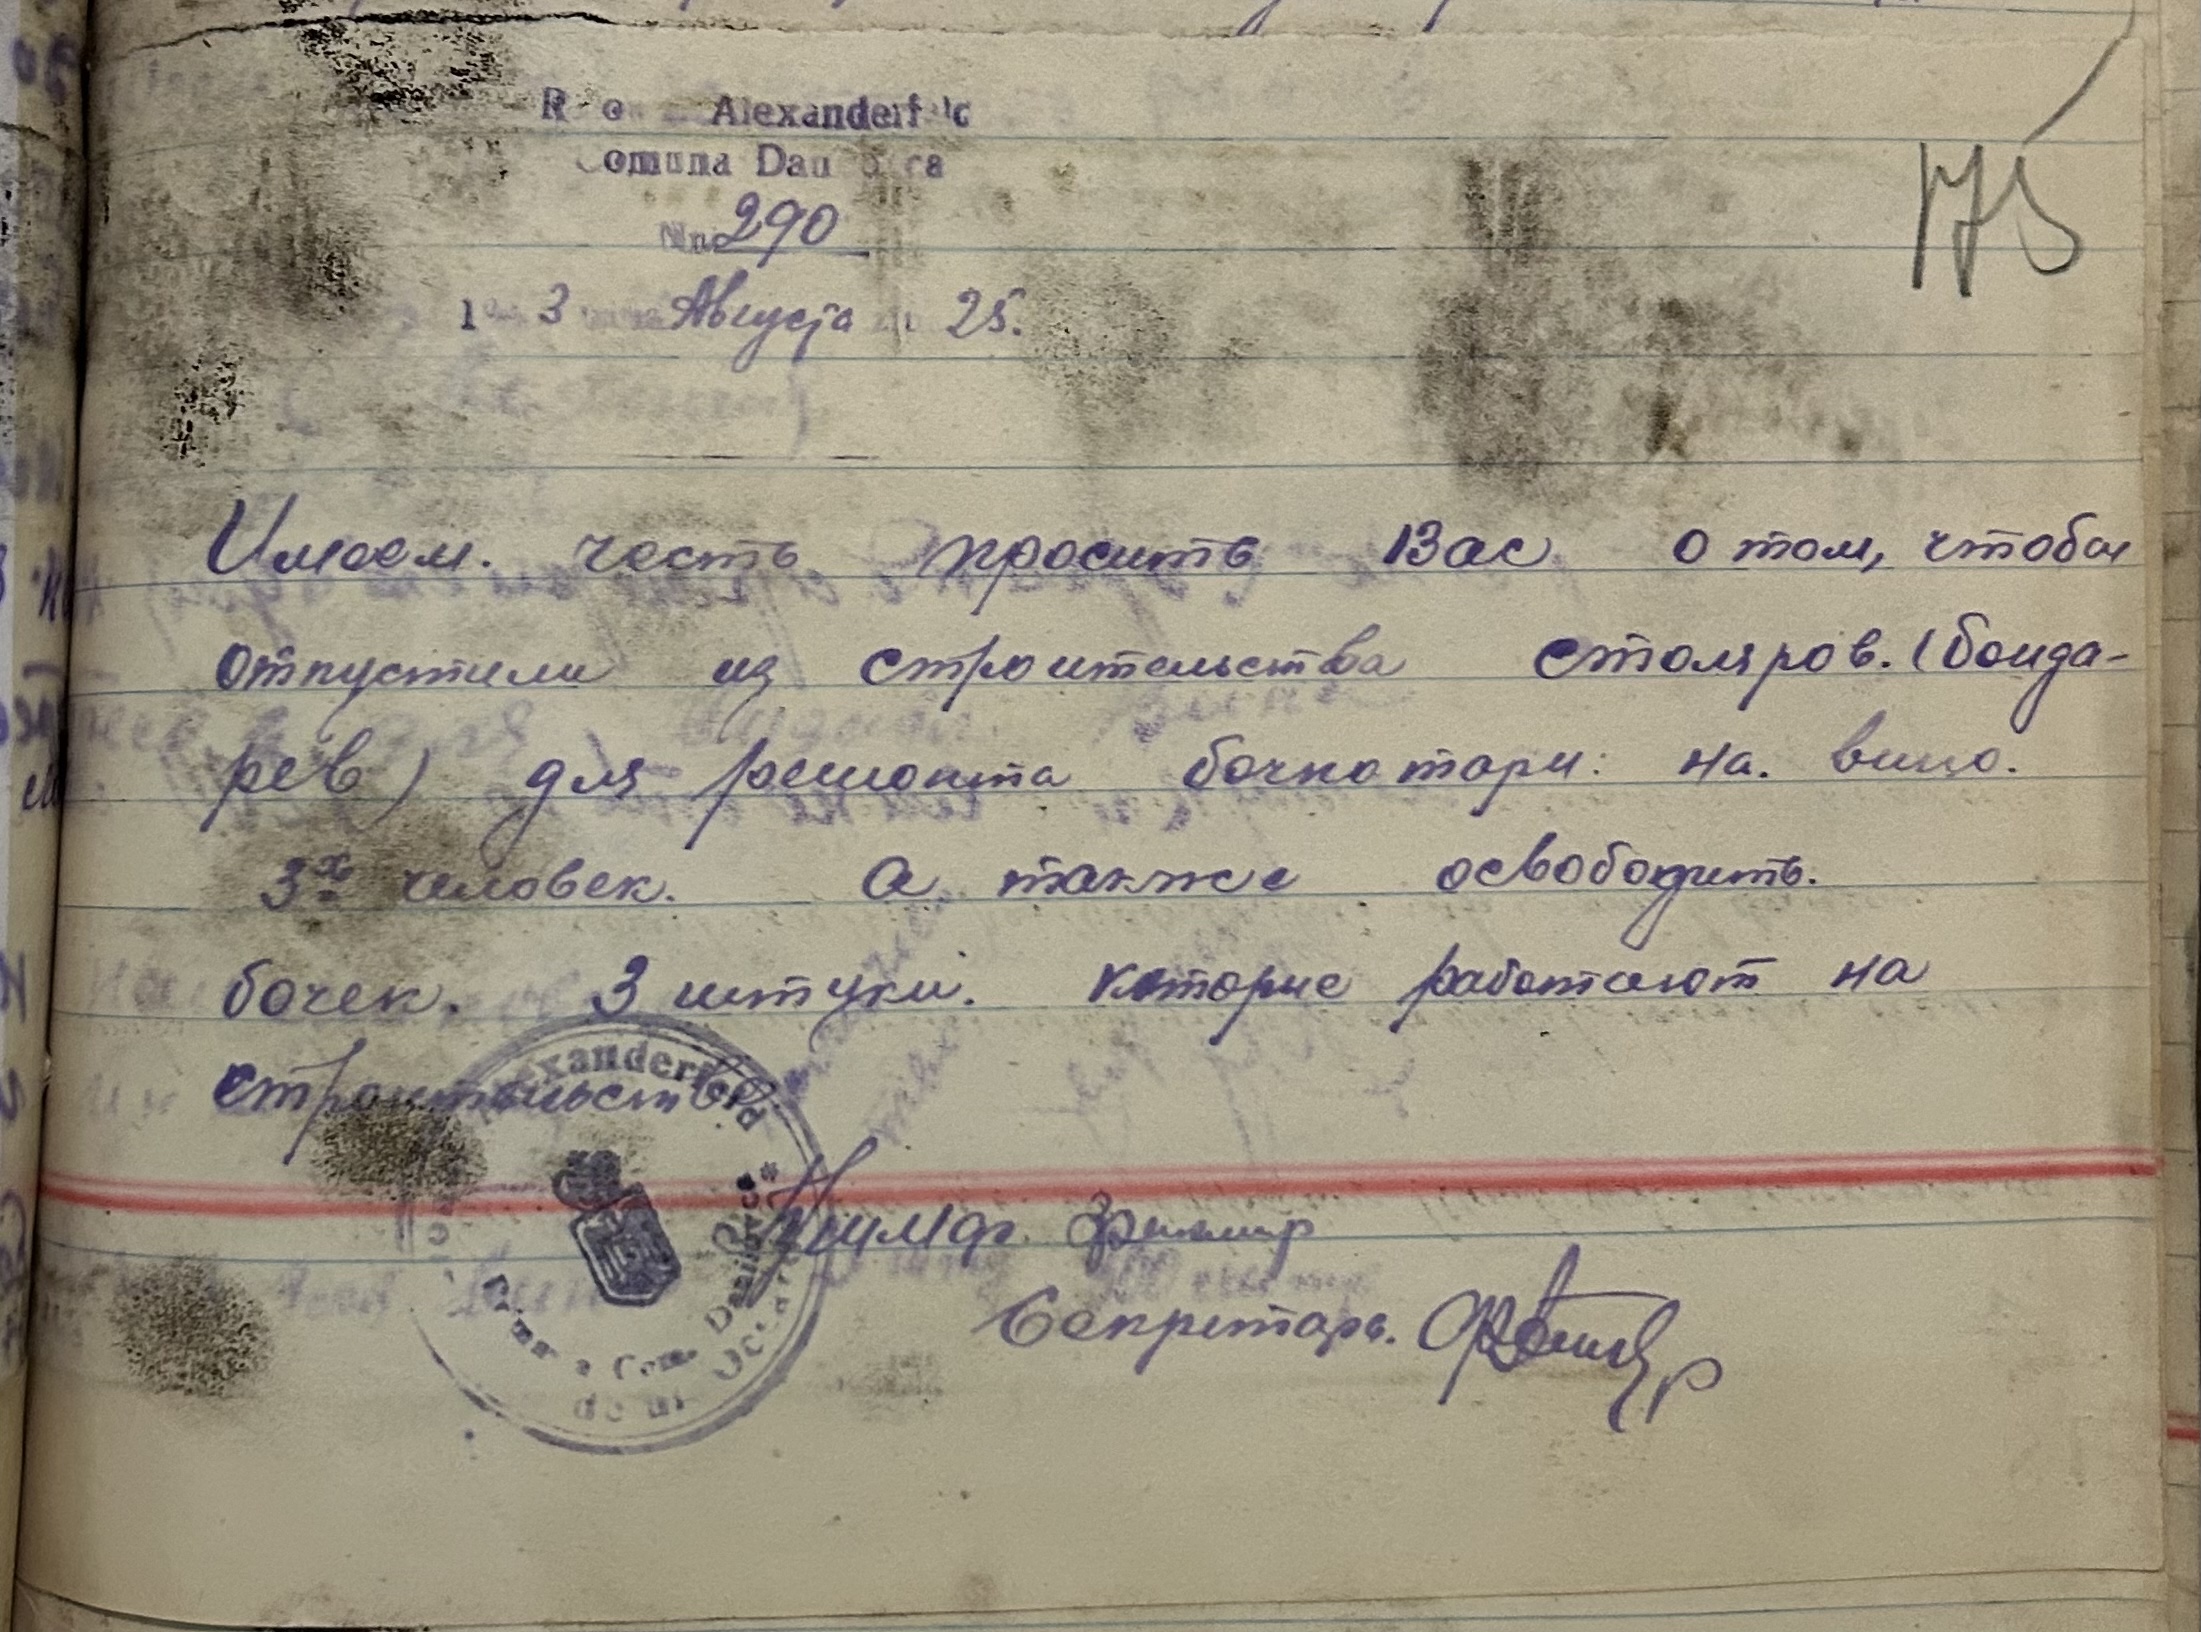 Alexanderfeld
Comuna
No 290
1 3 Августа 25.
175
Имеем. честь просить Вас о том, чтобы
отпустили из строительства столяров. (бонда-
рев) для ремонта бочкотары: на. вино.
3х человек. а также освободить.
бочек. 3 штуки. которые работают на
строительстве.
Alexanderfeld
Com.
Секретарь.